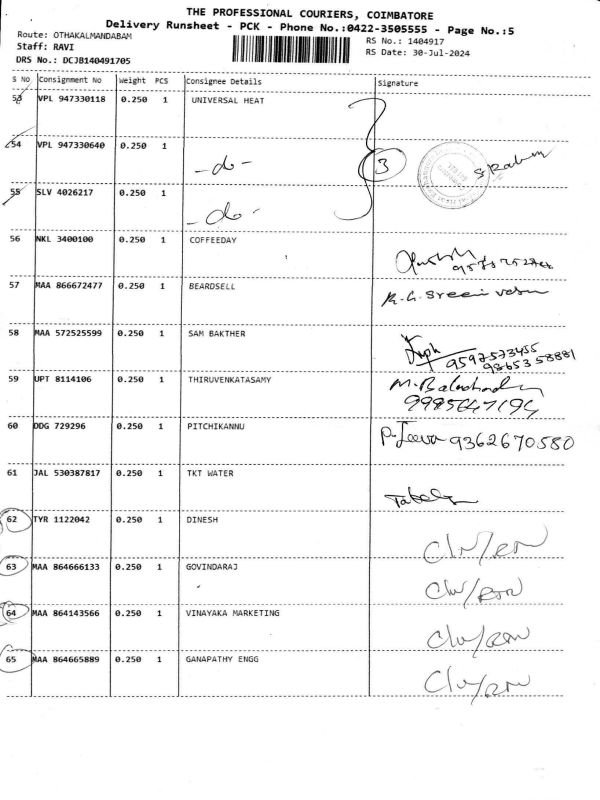 THE PROFESSIONAL COURIERS, COIMBATORE
Delivery Runsheet - PCK - Phone No.:0422-3505555 - Page No.:5
Route: OTHAKALMANDABAM
RS No.: 1404917
Staff: RAVI
RS Date: 30-Jul-2024
DRS No.: DCJB140491705
S No Consignment No Weight PCS Consignee Details Signature
53 VPL 947330118 0.250 1 UNIVERSAL HEAT
54 VPL 947330640 0.250 1 -do- 3
55 SLV 4026217 0.250 1 -do-
56 NKL 3400100 0.250 1 COFFEEDAY
57 MAA 866672477 0.250 1 BEARDSELL R.G. Sreenivasan
58 MAA 572525599 0.250 1 SAM BAKTHER
9597573455
9865358881
59 UPT 8114106 0.250 1 THIRUVENKATASAMY
60 DDG 729296 0.250 1 PITCHIKANNU P. Jeeva 9362670580
61 JAL 530387817 0.250 1 TKT WATER
62 TYR 1122042 0.250 1 DINESH
63 MAA 864666133 0.250 1 GOVINDARAJ
64 MAA 864143566 0.250 1 VINAYAKA MARKETING
65 MAA 864665889 0.250 1 GANAPATHY ENGG